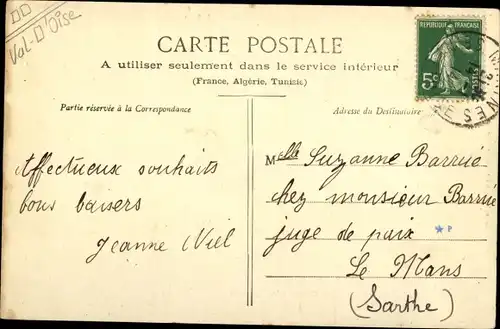 Val-D'Oise
CARTE POSTALE
A utiliser seulement dans le service intérieur
(France, Algérie, Tunisie)
REPUBLIQUE FRANÇAISE
5c
POSTES
Partie réservée à la Correspondance
Adresse du Destinataire
Affectueux souhaits
bons baisers
Jeanne Viel
Mlle Suzanne Barrué
chez monsieur Barrué
juge de paix
Le Mans
(Sarthe)